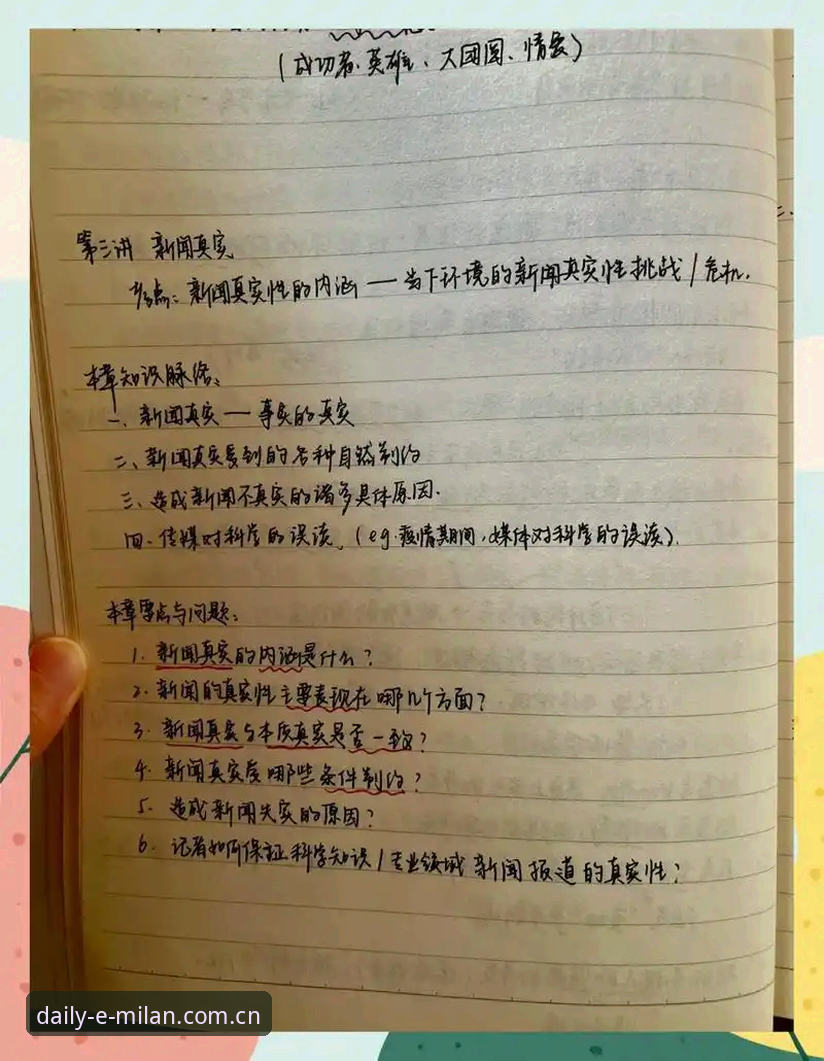 (成功者、英雄、大团圆、情爱)
第三讲 新闻真实
考点:新闻真实性的内涵 — 当下环境的新闻真实性挑战/危机.
本章知识脉络:
一、新闻真实 — 事实的真实
二、新闻真实受到的各种自然制约
三、造成新闻不真实的诸多具体原因.
四、传媒对科学的误读.(eg.疫情期间,媒体对科学的误读).
本章要点与问题:
1. 新闻真实的内涵是什么?
2. 新闻的真实性主要表现在哪几个方面?
3. 新闻真实与本质真实是否一致?
4. 新闻真实受哪些条件制约?
5. 造成新闻失实的原因?
6. 记者如何保证科学知识/专业领域新闻报道的真实性?
daily-e-milan.com.cn